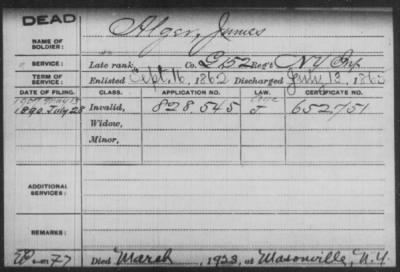 DEAD
NAME OF SOLDIER: Alger, James
SERVICE: Late rank, Co. G, 152 Reg't NY Inf.
TERM OF SERVICE: Enlisted Sept. 16, 1862 Discharged July 13, 1865
DATE OF FILING. CLASS. APPLICATION NO. LAW. CERTIFICATE NO.
1890 July 28 Invalid, 828.545 J 652751
Widow,
Minor,
ADDITIONAL SERVICES:
REMARKS:
Died March , 1923, at Masonville, N.Y.